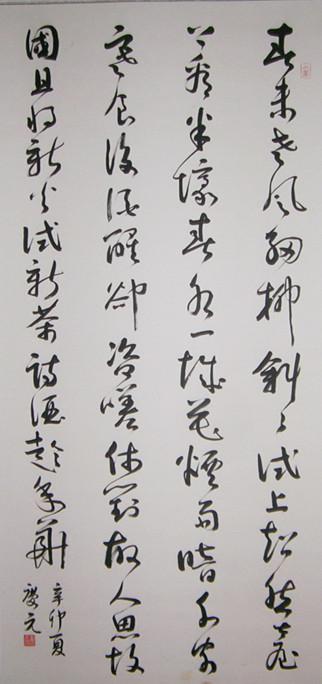 春未老風細柳斜々試上超然臺
上看半壕春水一城花煙雨暗千家
寒食後酒醒卻咨嗟休對故人思故
國且將新火試新茶詩酒趁年華
辛卯夏
慶元